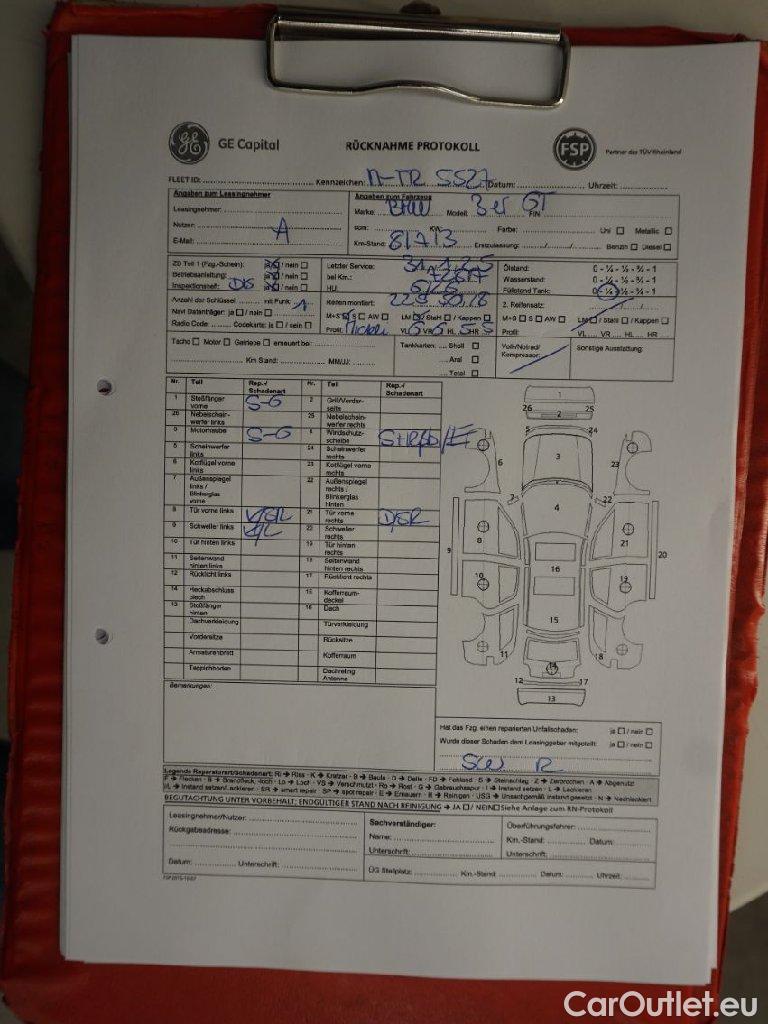 GE Capital
RÜCKNAHME PROTOKOLL
FSP
Partner des TÜV Rheinland
FLEET ID: Kennzeichen: Datum: Uhrzeit:
Angaben zum Leasingnehmer
Angaben zum Fahrzeug
Leasingnehmer:
Marke: BMW Modell: 3er GT FIN
Nutzer: A
kW: Farbe: Uni Metallic
E-Mail:
Km-Stand: 81713 Erstzulassung: Benzin Diesel
ZB Teil 1 (Fzg.-Schein): ja / nein
Letzter Service:
Ölstand: 0 - ¼ - ½ - ¾ - 1
Betriebsanleitung: ja / nein
bei Km.:
Wasserstand: 0 - ¼ - ½ - ¾ - 1
Inspektionsheft: ja / nein
HU:
Füllstand Tank: 0 - ¼ - ½ - ¾ - 1
Anzahl der Schlüssel mit Funk:
Reifen montiert: 225 50 18
2. Reifensatz:
Navi Datenträger: ja / nein
M+S S AW LM / Stahl / Kappen
M+S S AW LM / Stahl / Kappen
Radio Code: Codekarte: ja / nein
Profil: VL VR HL HR
Profil: VL VR HL HR
Tacho Motor Getriebe erneuert bei:
Tankkarten: Shell
Voll-/Notrad/
Kompressor:
Sonstige Ausstattung:
Km Stand: MM/JJ:
Aral
Total
Nr. Teil Rep.-/ Schadenart Nr. Teil Rep.-/ Schadenart
1 Stoßfänger vorne S-G 2 Grill/Vorderseite
26 Nebelscheinwerfer links 25 Nebelscheinwerfer rechts
3 Motorhaube S-G 4 Windschutzscheibe
5 Scheinwerfer links 24 Scheinwerfer rechts
6 Kotflügel vorne links 23 Kotflügel vorne rechts
7 Außenspiegel links / Blinkerglas vorne 22 Außenspiegel rechts / Blinkerglas hinten
8 Tür vorne links 21 Tür vorne rechts
9 Schweller links 20 Schweller rechts
10 Tür hinten links 19 Tür hinten rechts
11 Seitenwand hinten links 18 Seitenwand hinten rechts
12 Rücklicht links 17 Rücklicht rechts
14 Heckabschluss blech 15 Kofferraumdeckel
13 Stoßfänger hinten 16 Dach
Dachverkleidung Türverkleidung
Vordersitze Rücksitze
Armaturenbrett Kofferraum
Teppichboden Dachreling Antenne
26 2 25
1
5 24
6 3 23
7 22
4
8 21
9 20
16
10 19
15
11 18
14
12 17
13
Bemerkungen:
Hat das Fzg. einen reparierten Unfallschaden: ja / nein
Wurde dieser Schaden dem Leasinggeber mitgeteilt: ja / nein
Legende Reparaturart/Schadenart: Ri → Riss - K → Kratzer - B → Beule - D → Delle - FD → Fehlend - S → Steinschlag - Z → Zerbrochen - A → Abgenutzt
BEGUTACHTUNG UNTER VORBEHALT; ENDGÜLTIGER STAND NACH REINIGUNG → JA / NEIN Siehe Anlage zum RN-Protokoll
Leasingnehmer/Nutzer:
Sachverständiger:
Überführungsfahrer:
Rückgabeadresse:
Name:
Km.-Stand: Datum:
Unterschrift:
Unterschrift:
Datum: Unterschrift:
ÜG Stellplatz: Km.-Stand Datum: Uhrzeit:
CarOutlet.eu